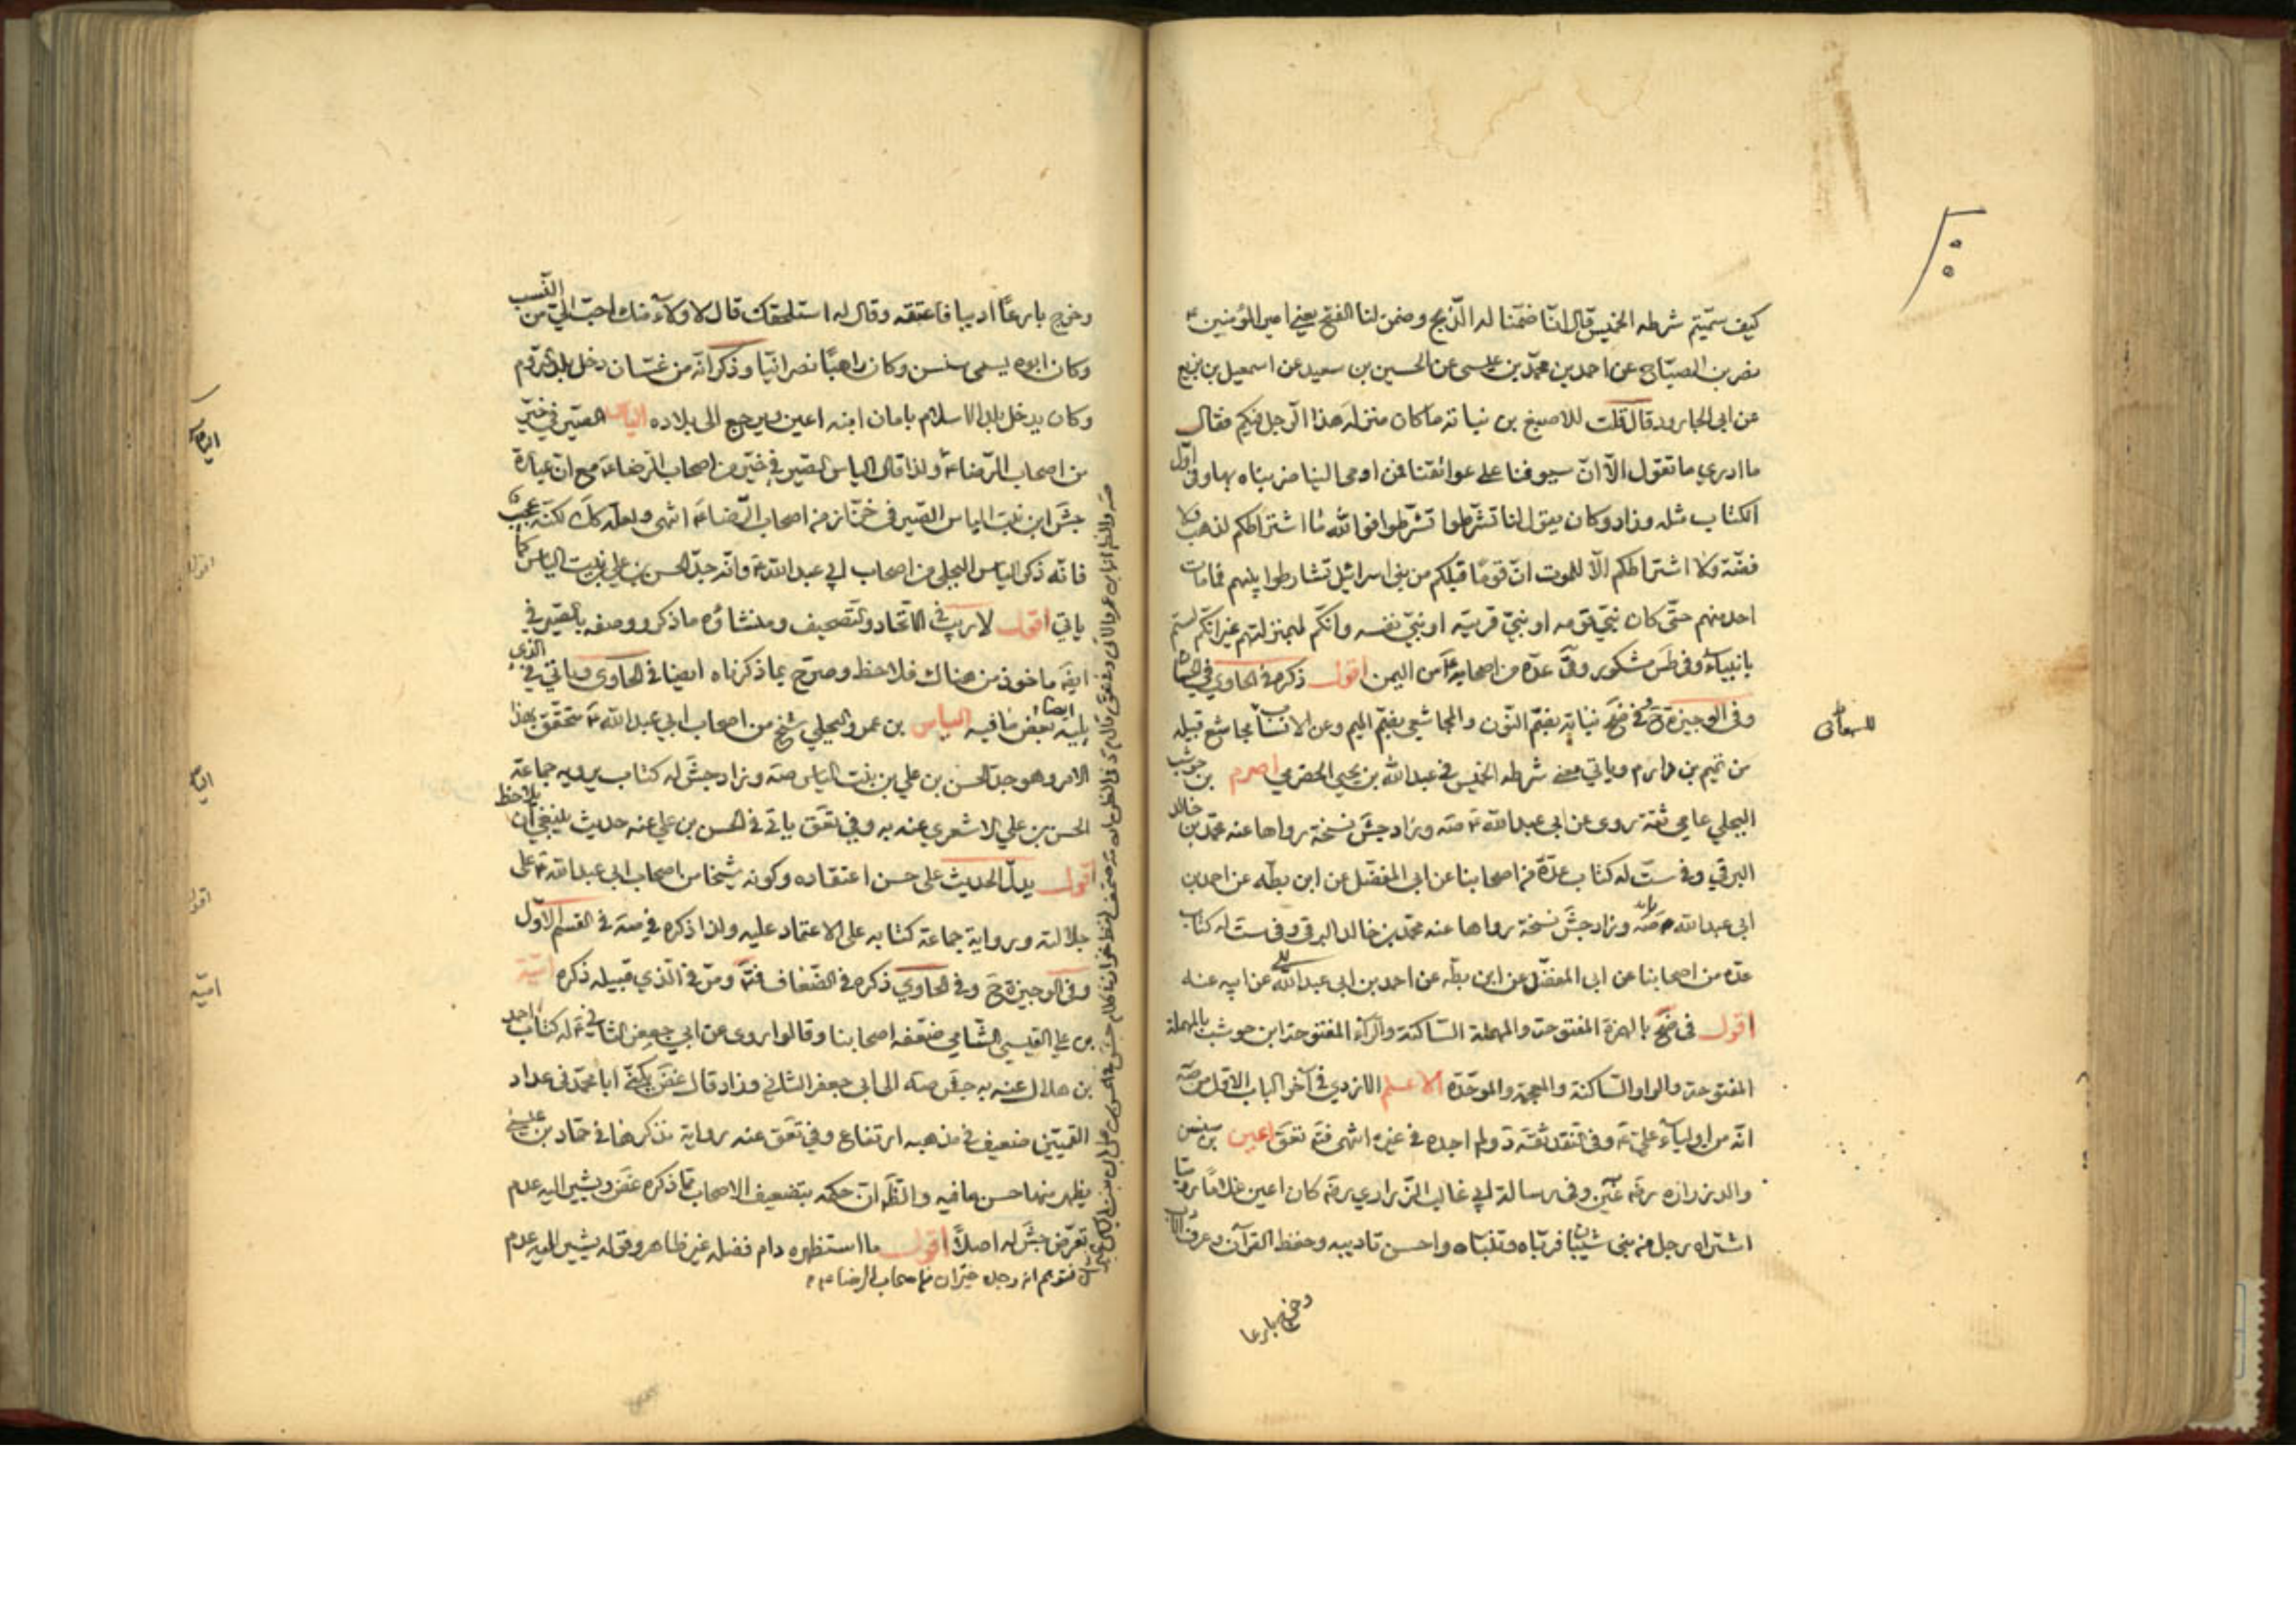 كيف سمّيتم شرطه الخميس قال انّا ضمّنا له الذّبح وضمن لنا الفتح يعني امير المؤمنين ع
نصر بن الصبّاح عن احمد بن محمّد بن عيسى عن الحسين بن سعيد عن اسمعيل بن بزيع
عن ابي الجارود قال قلت للاصبغ بن نباته ما كان منزله هذا الرجل فيكم فقال
ما ادري ما تقول الّا انّ سيوفنا على عواتقنا فمن اومى الينا ضربناه بها وفي اوّل
الكتاب مثله وزاد وكان يقول لنا تشرّطوا تشرّطوا فوالله ما اشتراطكم لذهب ولا
فضّة ولا اشتراطكم الّا للموت انّ قوما قبلكم من بني اسرائيل تشارطوا بينهم فما مات
احد منهم حتّى كان نبيّ قومه او نبيّ قريته او نبيّ نفسه وانّكم لبمنزلتهم غير انّكم لستم
بانبياء وفي طس مشكور وفي عدّه من اصحابه ع من اليمن اقول ذكره في الحاوي في
وفي الوجيزة ح وفي ضح نباته بضمّ النّون والمجاشعي بضمّ الميم وعن الانساب مجاشع قبيله
للسمعاني
من تميم بن دارم وياتي معنى شرطه الخميس في عبد الله بن يحيى الحضرمي اصرم بن حوشب
البجلي عامي ثقة روى عن ابي عبد الله ع صه وزاد جش نسخة رواها عنه محمّد بن خالد
البرقي وفي ست له كتاب عدّة من اصحابنا عن ابي المفضّل عن ابن بطّه عن احمد بن
ابي عبد الله صه وزاد جش نسخة رواها عنه محمّد بن خالد البرقي وفي ست له كتاب
عدّه من اصحابنا عن ابي المفضّل عن ابن بطّه عن احمد بن ابي عبد الله عن ابيه عنه
اقول في ضح بالهمزة المفتوحة والمهملة السّاكنة والراء المفتوحة ابن حوشب بالمهملة
المفتوحة والواو السّاكنة والمعجمة والموحّدة الاعلم الازدي في آخر الباب الاوّل من صه
انّه من اولياء علي ع وفي النقد ثقة د ولم اجده في غيره انتهى فتم تعق اعين بن سنسن
والد زراره وفي رسالة ابي غالب الزّراري ره كان اعين غلاما روميّا
اشتراه رجل من بني شيبان فربّاه وتبنّاه واحسن تاديبه وحفظ القرآن وعرف الادب
وخرج بارعا
وخرج بارعًا اديبا فاعتقه وقال له استلحقك قال لا ولاء منك احبّ اليّ من النّسب
وكان ابوه يسمى سنسن وكان راهبًا نصرانيّا وذكر انّه من غسّان دخل بلد الروم
وكان يدخل بلد الاسلام بامان ابنه اعين ويرجع الى بلاده الياس الصيرفي خيّر
من اصحاب الرّضا ع ولذا قال الياس الصيرفي خيّر من اصحاب الرّضا ع مع انّ عبارة
جش ابن بنت الياس الصيرفي خزّاز من اصحاب الرّضا ع انتهى ولعلّه كك لكنّه عجيب
فانّه ذكر الياس البجلي من اصحاب ابي عبد الله ع وانّه جدّ الحسن بن علي بن بنت الياس كما
ياتي اقول لا ريب في الاتّحاد والتّصحيف ومنشاؤه ما ذكر ووصفه بالصّيرفي
ايضًا ماخوذ من هناك فلاحظ وصرّح بما ذكرناه ايضا في الحاوي وياتي في الذي
يليه ايضا بعض ما فيه الياس بن عمرو البجلي شيخ من اصحاب ابي عبد الله ع متحقّق بهذا
الامر وهو جدّ الحسن بن علي بن بنت الياس صه وزاد جش له كتاب يرويه جماعة
الحسن بن علي الاشعري عنه به وفي تعق ياتي في الحسن بن علي عنه حديث ينبغي ان يلاحظ
اقول يدلّ الحديث على حسن اعتقاده وكونه شيخا من اصحاب ابي عبد الله ع على
جلالته ورواية جماعة كتابه على الاعتماد عليه ولذا ذكره في صه في القسم الاوّل
وفي الوجيزة ح وفي الحاوي ذكره في الضّعاف فتم ومرّ في الذي قبيله ذكره اميّة
بن علي القيسي الشّامي ضعّفه اصحابنا وقالوا روى عن ابي جعفر الثاني ع له كتاب احمد
بن هلال عنه به جش صه الى ابي جعفر الثاني وزاد قال غض يكنّى ابا محمّد في عداد
القميّين ضعيف في مذهبه ارتفاع وفي تعق عنه رواية نذكرها في حمّاد بن عيسى
يظهر منها حسن ما فيه والظّ انّ حكمه بتضعيف الاصحاب ممّا ذكره غض ويشير اليه عدم
تعرّض جش له اصلًا اقول ما استظهره دام فضله غير ظاهر وقوله يشير اليه عدم
فتوهم انه رجل خيران من اصحاب الرضا ع